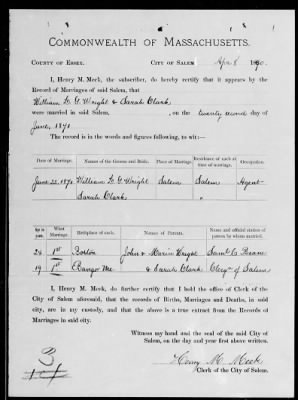 COMMONWEALTH OF MASSACHUSETTS.
COUNTY OF ESSEX. CITY OF SALEM Apr 8 1890.
I, Henry M. Meek, the subscriber, do hereby certify that it appears by the
Record of Marriages of said Salem, that
William L. G. Wright & Sarah Clark
were married in said Salem, , on the twenty second day of
June, 1870
The record is in the words and figures following, to wit:—
Date of Marriage. Names of the Groom and Bride. Place of Marriage. Residence of each at time of marriage. Occupation.
June 22, 1870 William L. G. Wright Salem Salem Agent
Sarah Clark "
Age in years. What Marriage. Birthplace of each. Names of Parents. Name and official station of person by whom married.
24 1st Boston John & Maria Wright Saml C. Beane
19 1st Bangor Me & Sarah Clark Clergn of Salem
I, Henry M. Meek, do further certify that I hold the office of Clerk of the
City of Salem aforesaid, that the records of Births, Marriages and Deaths, in said
city, are in my custody, and that the above is a true extract from the Records of
Marriages in said city.
Witness my hand and the seal of the said City of
Salem, on the day and year first above written.
Henry M. Meek
Clerk of the City of Salem.